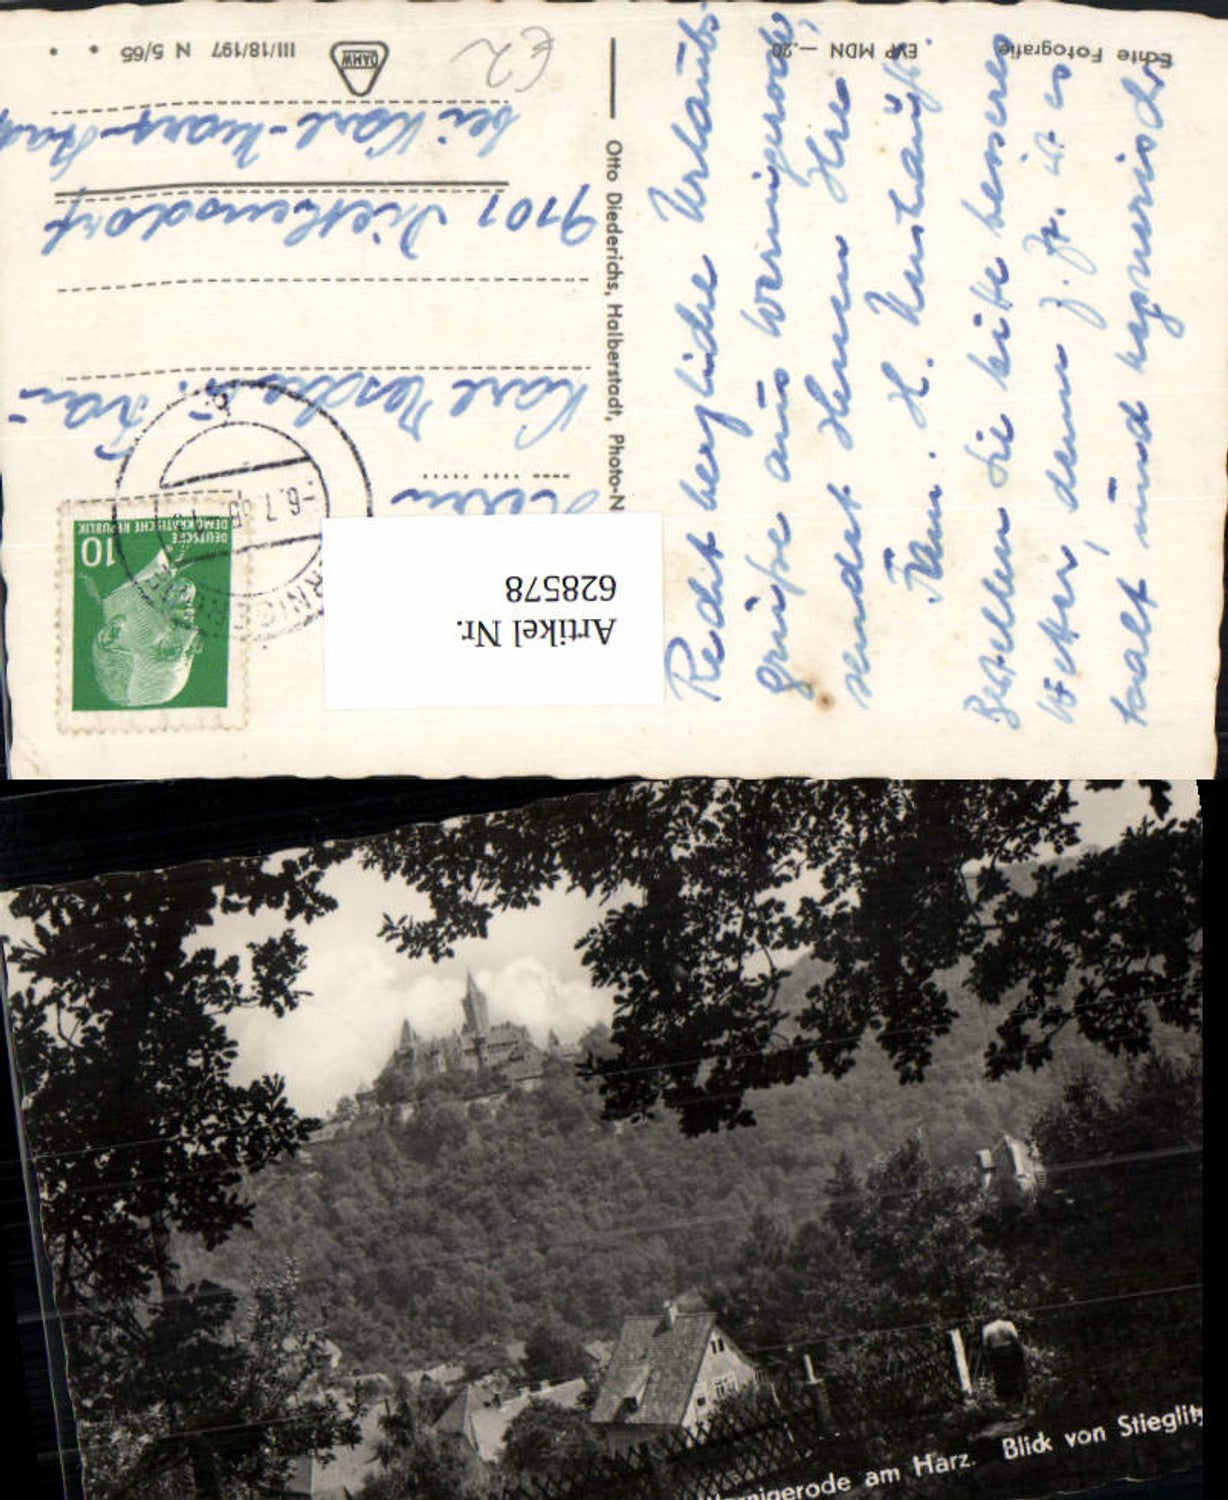 Recht herzliche Urlaubs-
grüße aus Wernigerode,
sendet Ihnen Ihre
Fam. H.
Bestellen Sie bitte besseres
Wetter, denn z. Zt. ist es
kalt und regnerisch.
Echte Fotografie
EVP MDN —.20
Otto Diederichs, Halberstadt, Photo-N
DAMW
III/18/197 N 5/65
€2
DEUTSCHE
DEMOKRATISCHE REPUBLIK
10
-6.7.65
Herrn
Karl u. Frau
9101 Diethensdorf
bei Karl-Marx-Stadt
Artikel Nr.
628578
Wernigerode am Harz. Blick von Stieglitz